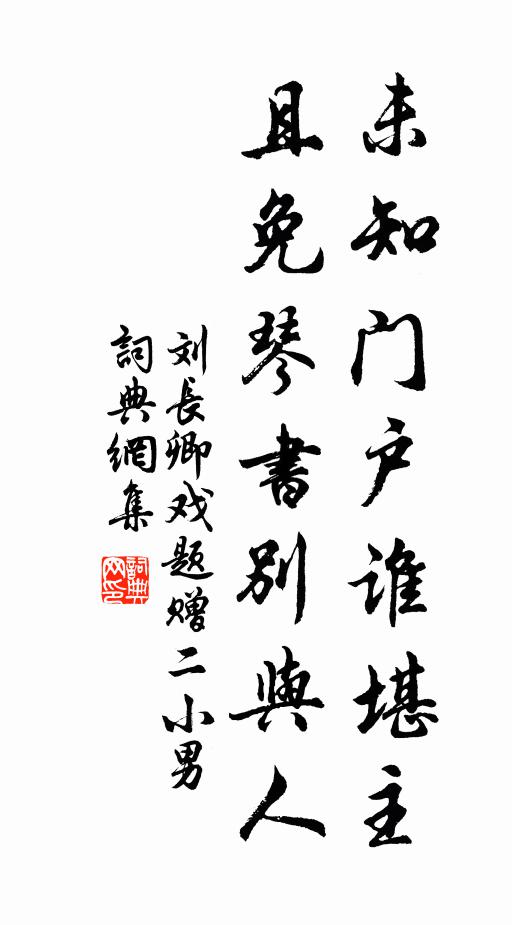 未知门户谁堪主
且免琴書别與人
刘長卿戏题赠二小男
詞典網集
詞典网印